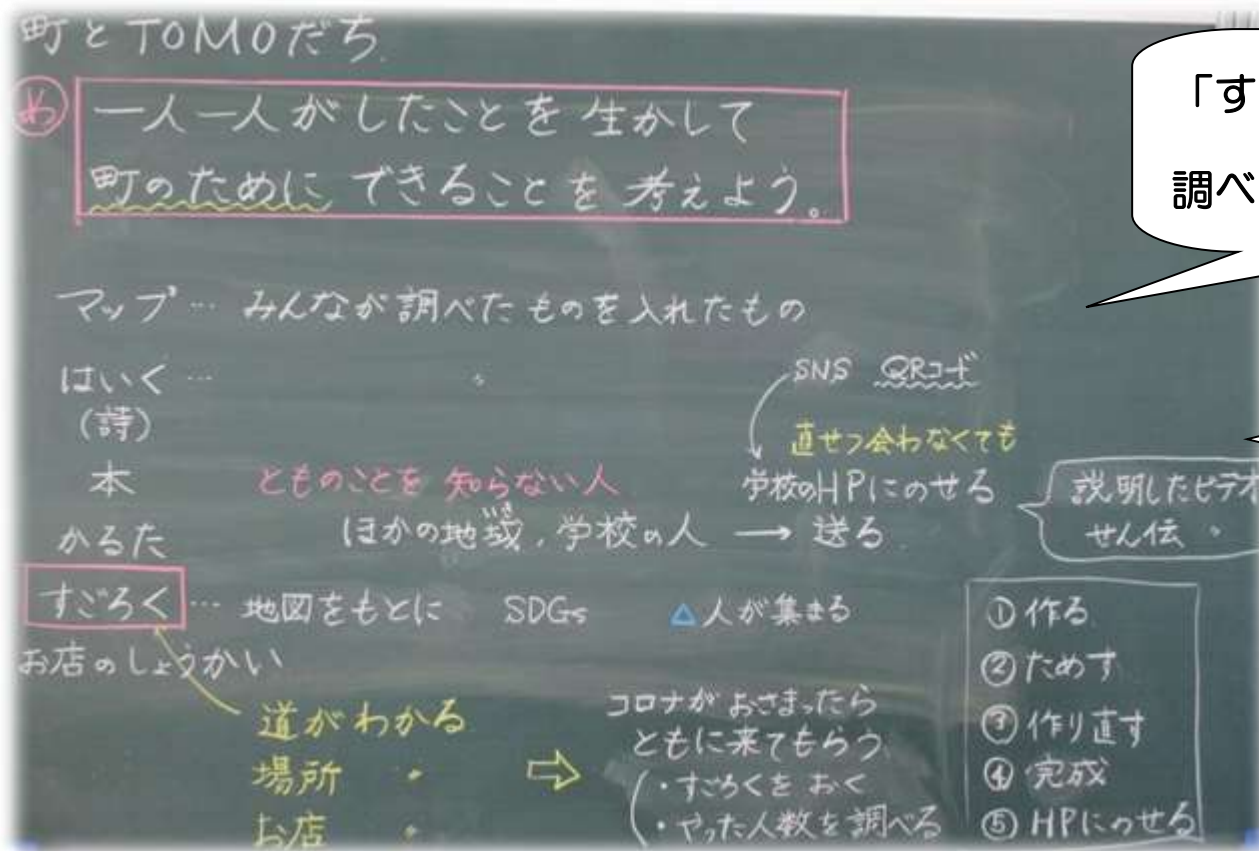 町とTOMOだち
め 一人一人がしたことを生かして
町のためにできることを考えよう。
マップ… みんなが調べたものを入れたもの
はいく… 〃
(詩)
本
かるた
すごろく… 地図をもとに SDGs △人が集まる
お店のしょうかい
とものことを知らない人
ほかの地域、学校の人 → 送る
いき
SNS QRコード
直せつ会わなくても
学校のHPにのせる
説明したビデオ
せん伝 〃
道がわかる
場所 〃
お店 〃
⇨
コロナがおさまったら
ともに来てもらう
・すごろくをおく
・やった人数を調べる
①作る
②ためす
③作り直す
④完成
⑤HPにのせる
「す
調べ